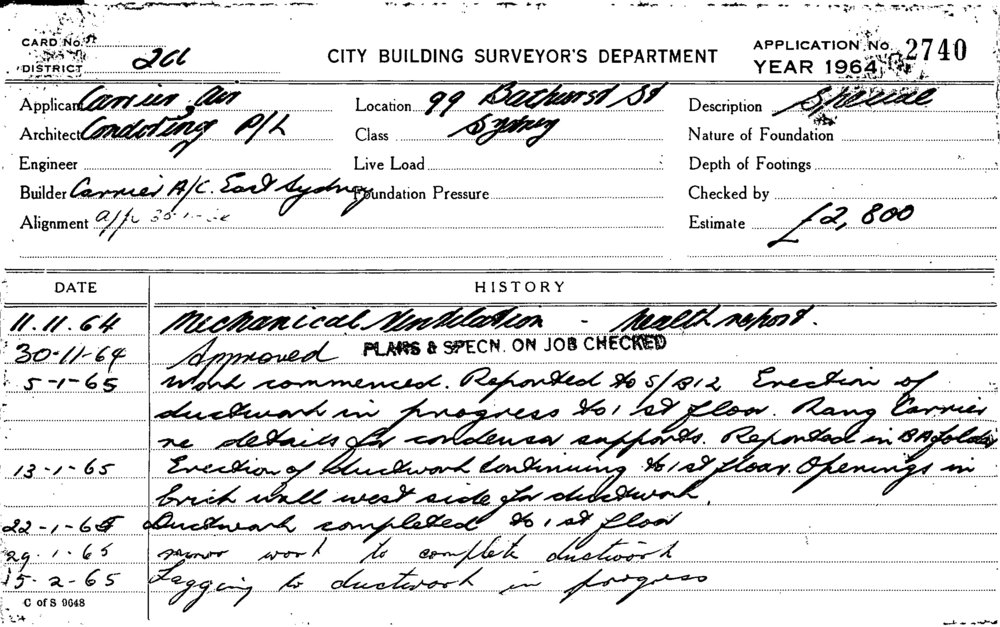 CARD No.
DISTRICT 261
CITY BUILDING SURVEYOR'S DEPARTMENT
APPLICATION No. 2740
YEAR 1964
Applicant Carrier Air
Location 99 Bathurst St
Description Special
Architect Conditing P/L
Class Sydney
Nature of Foundation
Engineer
Live Load
Depth of Footings
Builder Carrier A/C. East Sydney
Foundation Pressure
Checked by
Alignment
Estimate £2,800
DATE HISTORY
11.11.64 Mechanical Ventilation - Health report.
30-11-64 Approved PLANS & SPECN. ON JOB CHECKED
5-1-65 Work commenced. Reported to S/B12 Erection of
ductwork in progress to 1st floor. Rang Carrier
re details for condensor supports. Reported in BA folder
13-1-65 Erection of ductwork continuing to 1st floor. Openings in
brick wall west side for ductwork.
22-1-65 Ductwork completed to 1st floor
29.1.65 minor work to complete ductwork
15-2-65 Lagging to ductwork in progress
C of S 9648